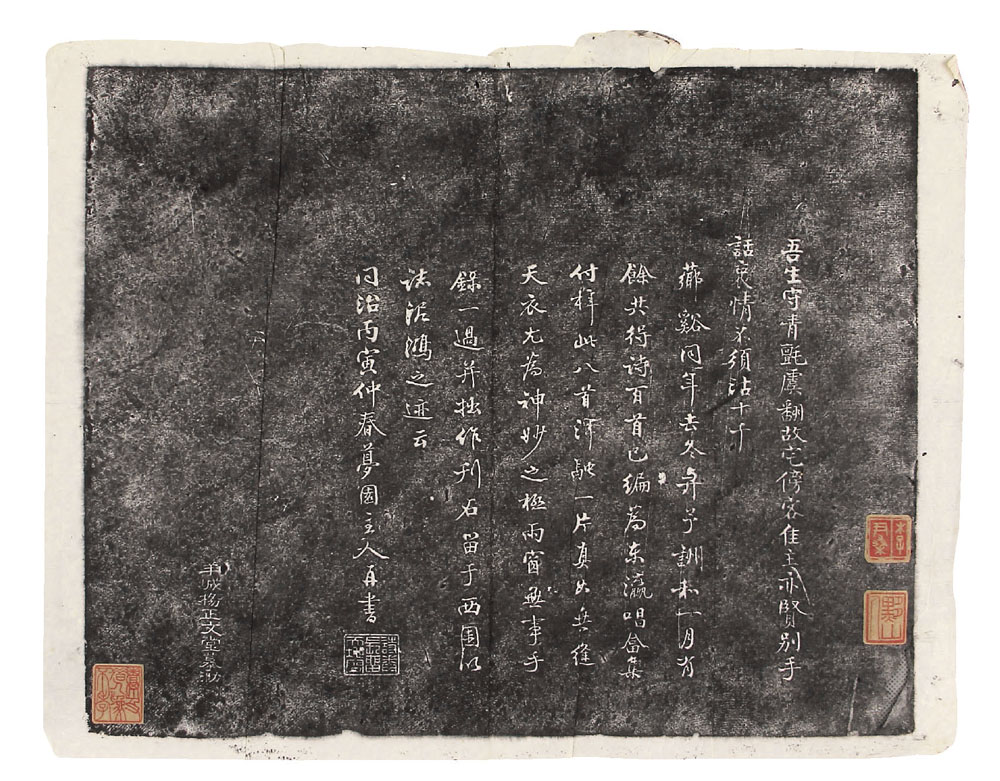 吾生守青氈虞翻故宅傍客佳主亦賢别手
話衷情不須沽十千
薌谿同年去冬與予訓和一月有
餘共得诗百首已編為东瀛唱和集
付梓此八首渾融一片真如無縫
天衣尤為神妙之極雨窗無事手
錄一過并拙作刋石留于西園以
誌泥鴻之迹云
同治丙寅仲春夢園主人再書
羊城楊正文堂摹泐